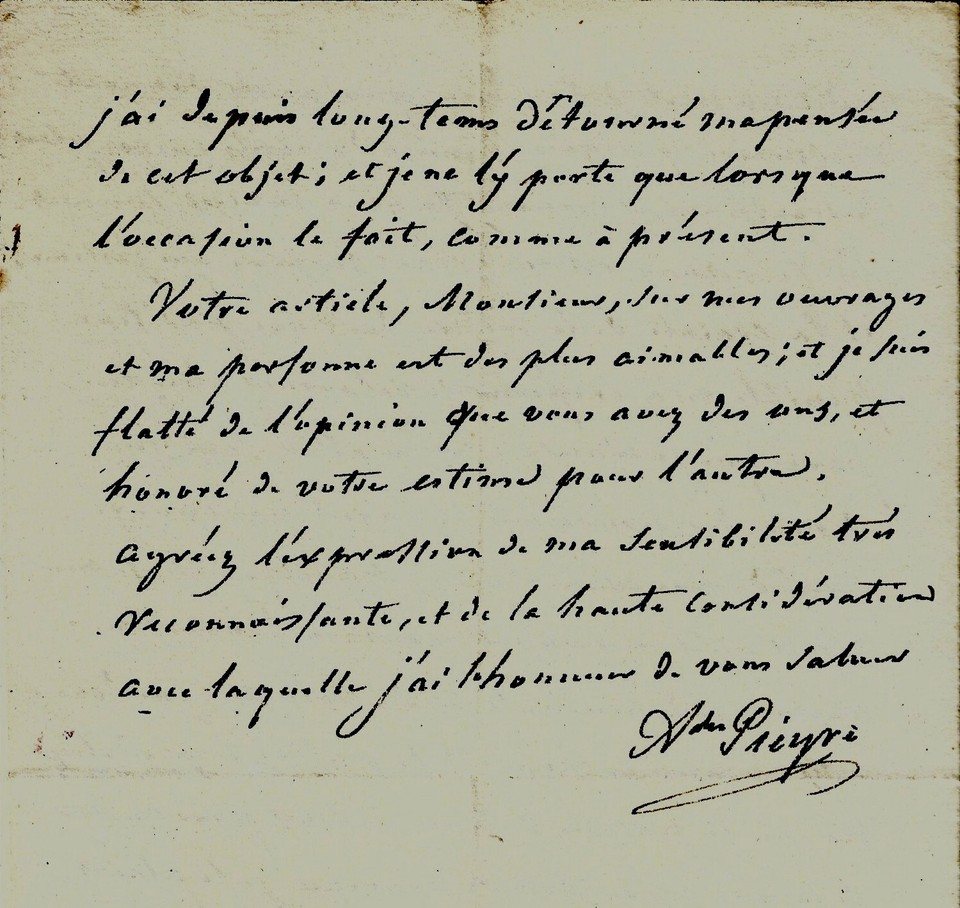 j'ai depuis long-tems détourné ma pensée
de cet objet; et je ne l'y porte que lorsque
l'occasion le fait, comme à présent.
Votre article, Monsieur, sur mes ouvrages
et ma personne est des plus aimables; et je suis
flatté de l'opinion que vous avez des uns, et
honoré de votre estime pour l'autre.
agréez l'expression de ma sensibilité très
reconnaissante, et de la haute considération
avec laquelle j'ai l'honneur de vous saluer
Adre Pieyre